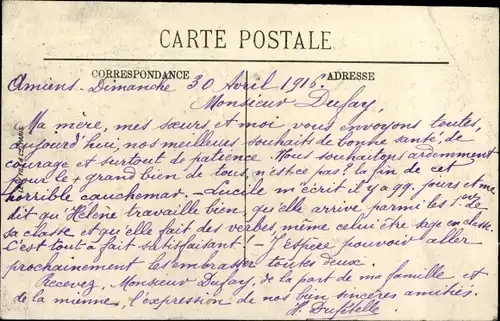 CARTE POSTALE
CORRESPONDANCE
ADRESSE
Amiens - Dimanche 30 Avril 1916.
Monsieur Dufay,
Ma mère, mes sœurs et moi vous envoyons toutes,
aujourd'hui, nos meilleurs souhaits de bonne santé, de
courage et surtout de patience. Nous souhaitons ardemment
pour le + grand bien de tous, n'est ce pas? la fin de cet
horrible cauchemar. - Lucile m'écrit il y a qq. jours et me
dit qu'Hélène travaille bien, qu'elle arrive parmi les 1ères de
sa classe et qu'elle fait des verbes, même celui être sage en classe.
C'est tout à fait satisfaisant! - J'espère pouvoir aller
prochainement les embrasser toutes deux.
Recevez, Monsieur Dufay, de la part de ma famille et
de la mienne, l'expression de nos bien sincères amitiés.